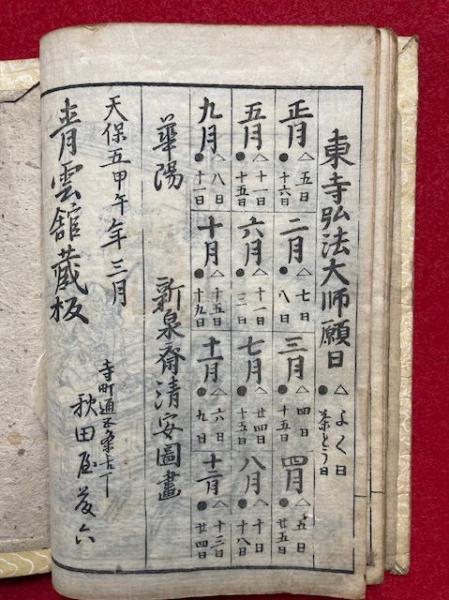 東寺弘法大師願日
△よく日
●茶とう日
正月 △五日 ●十六日
二月 △七日 ●八日
三月 △四日 ●十五日
四月 △五日 ●廿五日
五月 △十一日 ●十五日
六月 △十一日 ●三日
七月 △廿四日 ●十五日
八月 △十日 ●十八日
九月 △八日 ●十一日
十月 △十五日 ●十九日
十一月 △六日 ●九日
十二月 △十三日 ●廿四日
華陽 新泉齋清安圖畫
天保五甲午年三月
青雲舘蔵板
寺町通五条上丁
秋田屋藤六